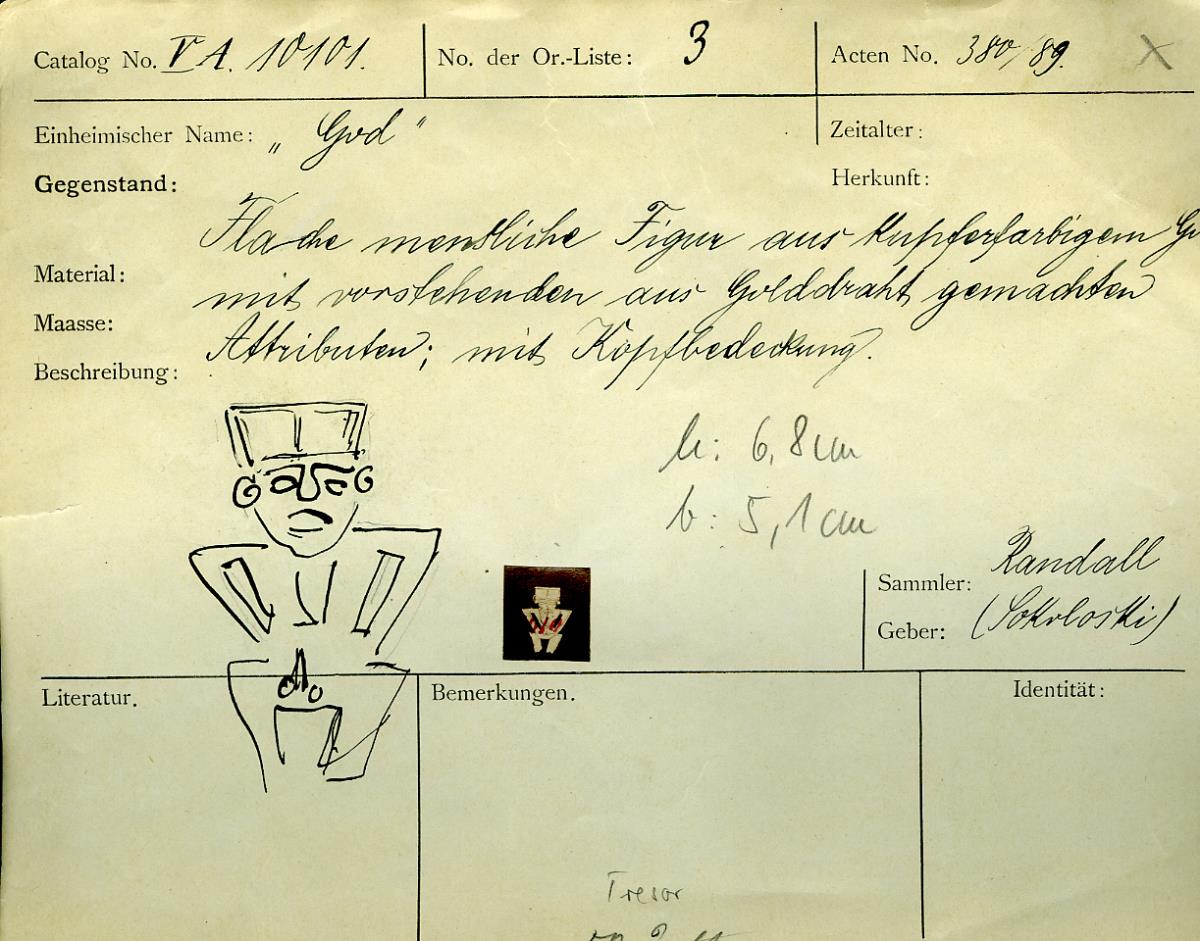 Catalog No. VA. 10101. No. der Or.-Liste: 3 Acten No. 380/89. X
Einheimischer Name: „ God " Zeitalter:
Gegenstand: Herkunft:
Flache menschliche Figur aus kupferfarbigem
Material:
mit vorstehenden aus Golddraht gemachten
Maasse:
Attributen; mit Kopfbedeckung.
Beschreibung:
h: 6,8 cm
b: 5,1 cm
Sammler: Randall
Geber: (Sokoloski)
Literatur. Bemerkungen. Identität:
Tresor